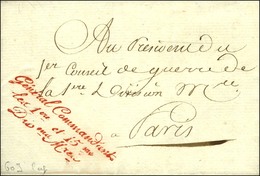 Au Président du
1er Conseil de guerre de
la 1ere Division Mre
à Paris
Général Commandant
les 1re et 15me
Dions Mres